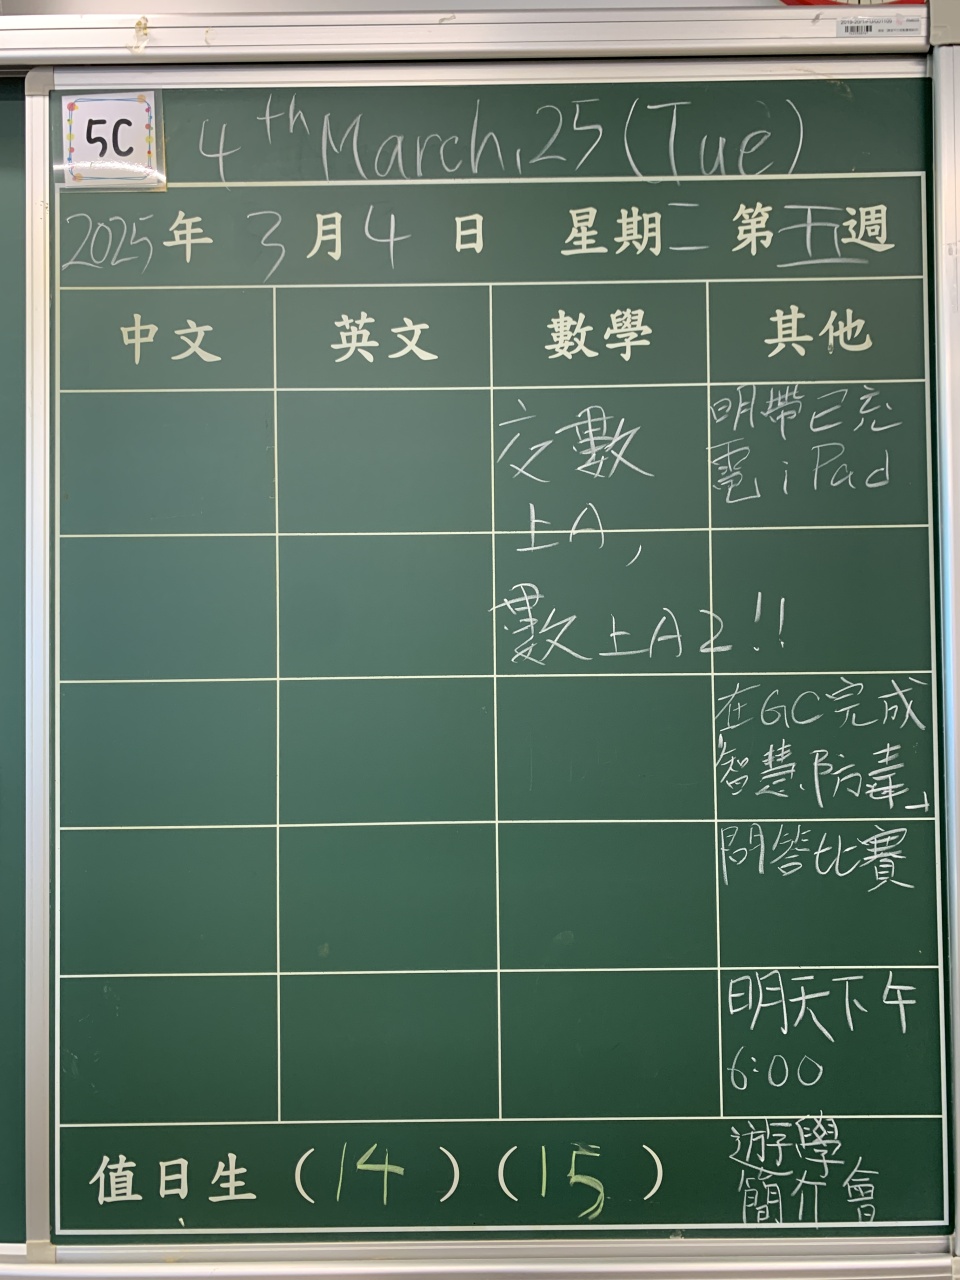 5C
4th March, 25 (Tue)
2025年 3月4日 星期二 第五週
中文 英文 數學 其他
交數
上A,
數上A2!!
明帶已充
電iPad
在GC完成
智慧防毒
問答比賽
明天下午
6:00
遊學
簡介會
值日生 (14) (15)